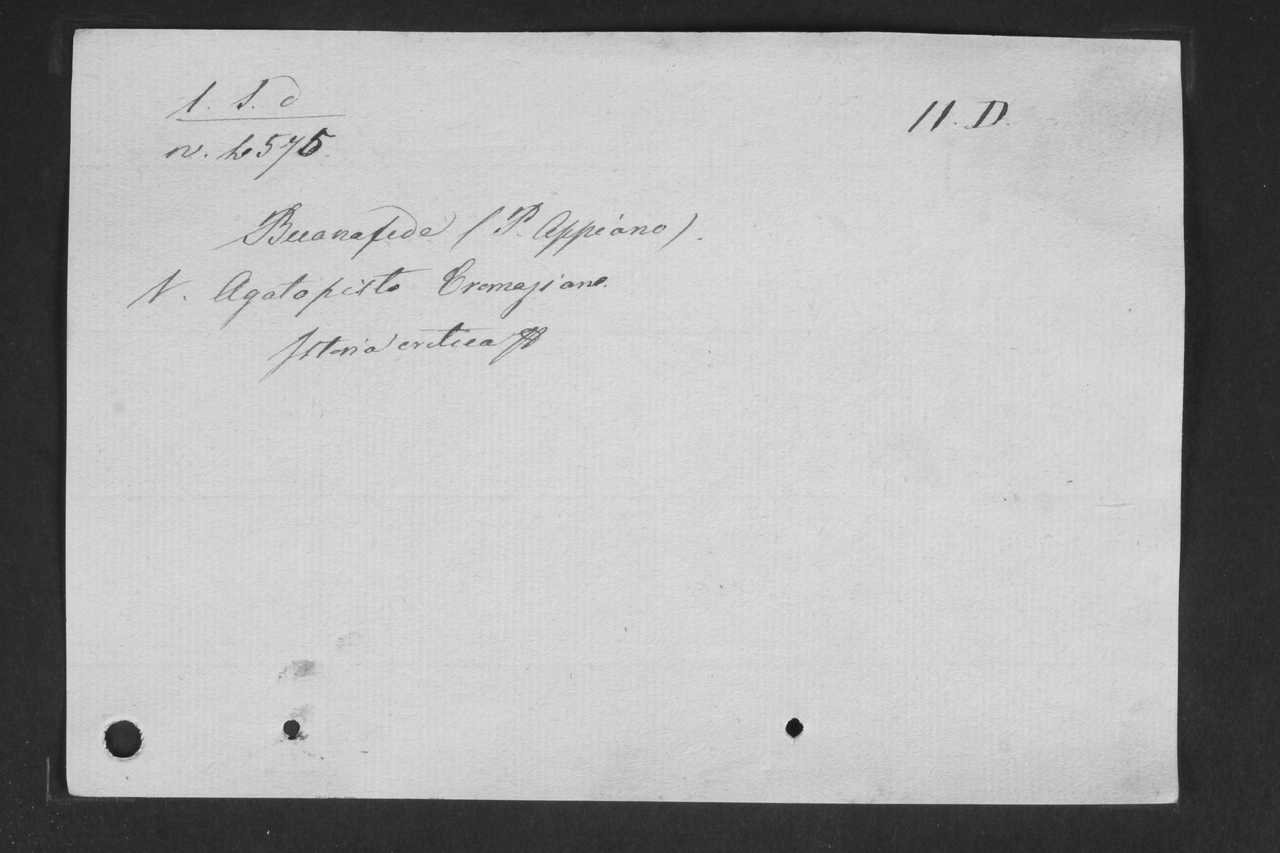 1. S. d
11. D.
n. 4575.
Buonafede (P. Appiano).
V. Agatopisto Cromaziano.
Istoria critica